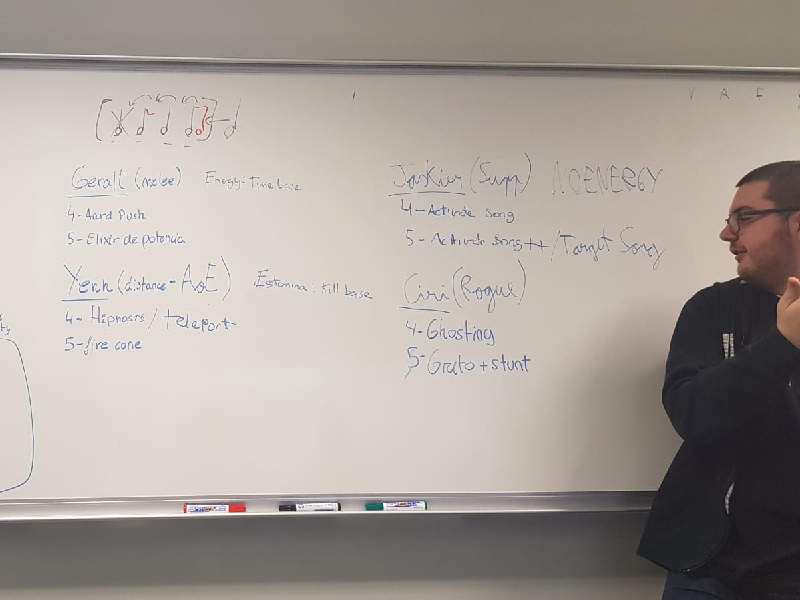 Geralt (melee) Energy: Time base
4-Aard Push
5-Elixir de potencia
Yenn (distance-AoE) Estamina: Kill base
4-Hipnosis / teleport
5-fire cone
Jaskier (Supp) NOENERGY
4-Activate song
5-Activate song++/Target Song
Ciri (Rogue)
4-Ghosting
5-Grito + stunt